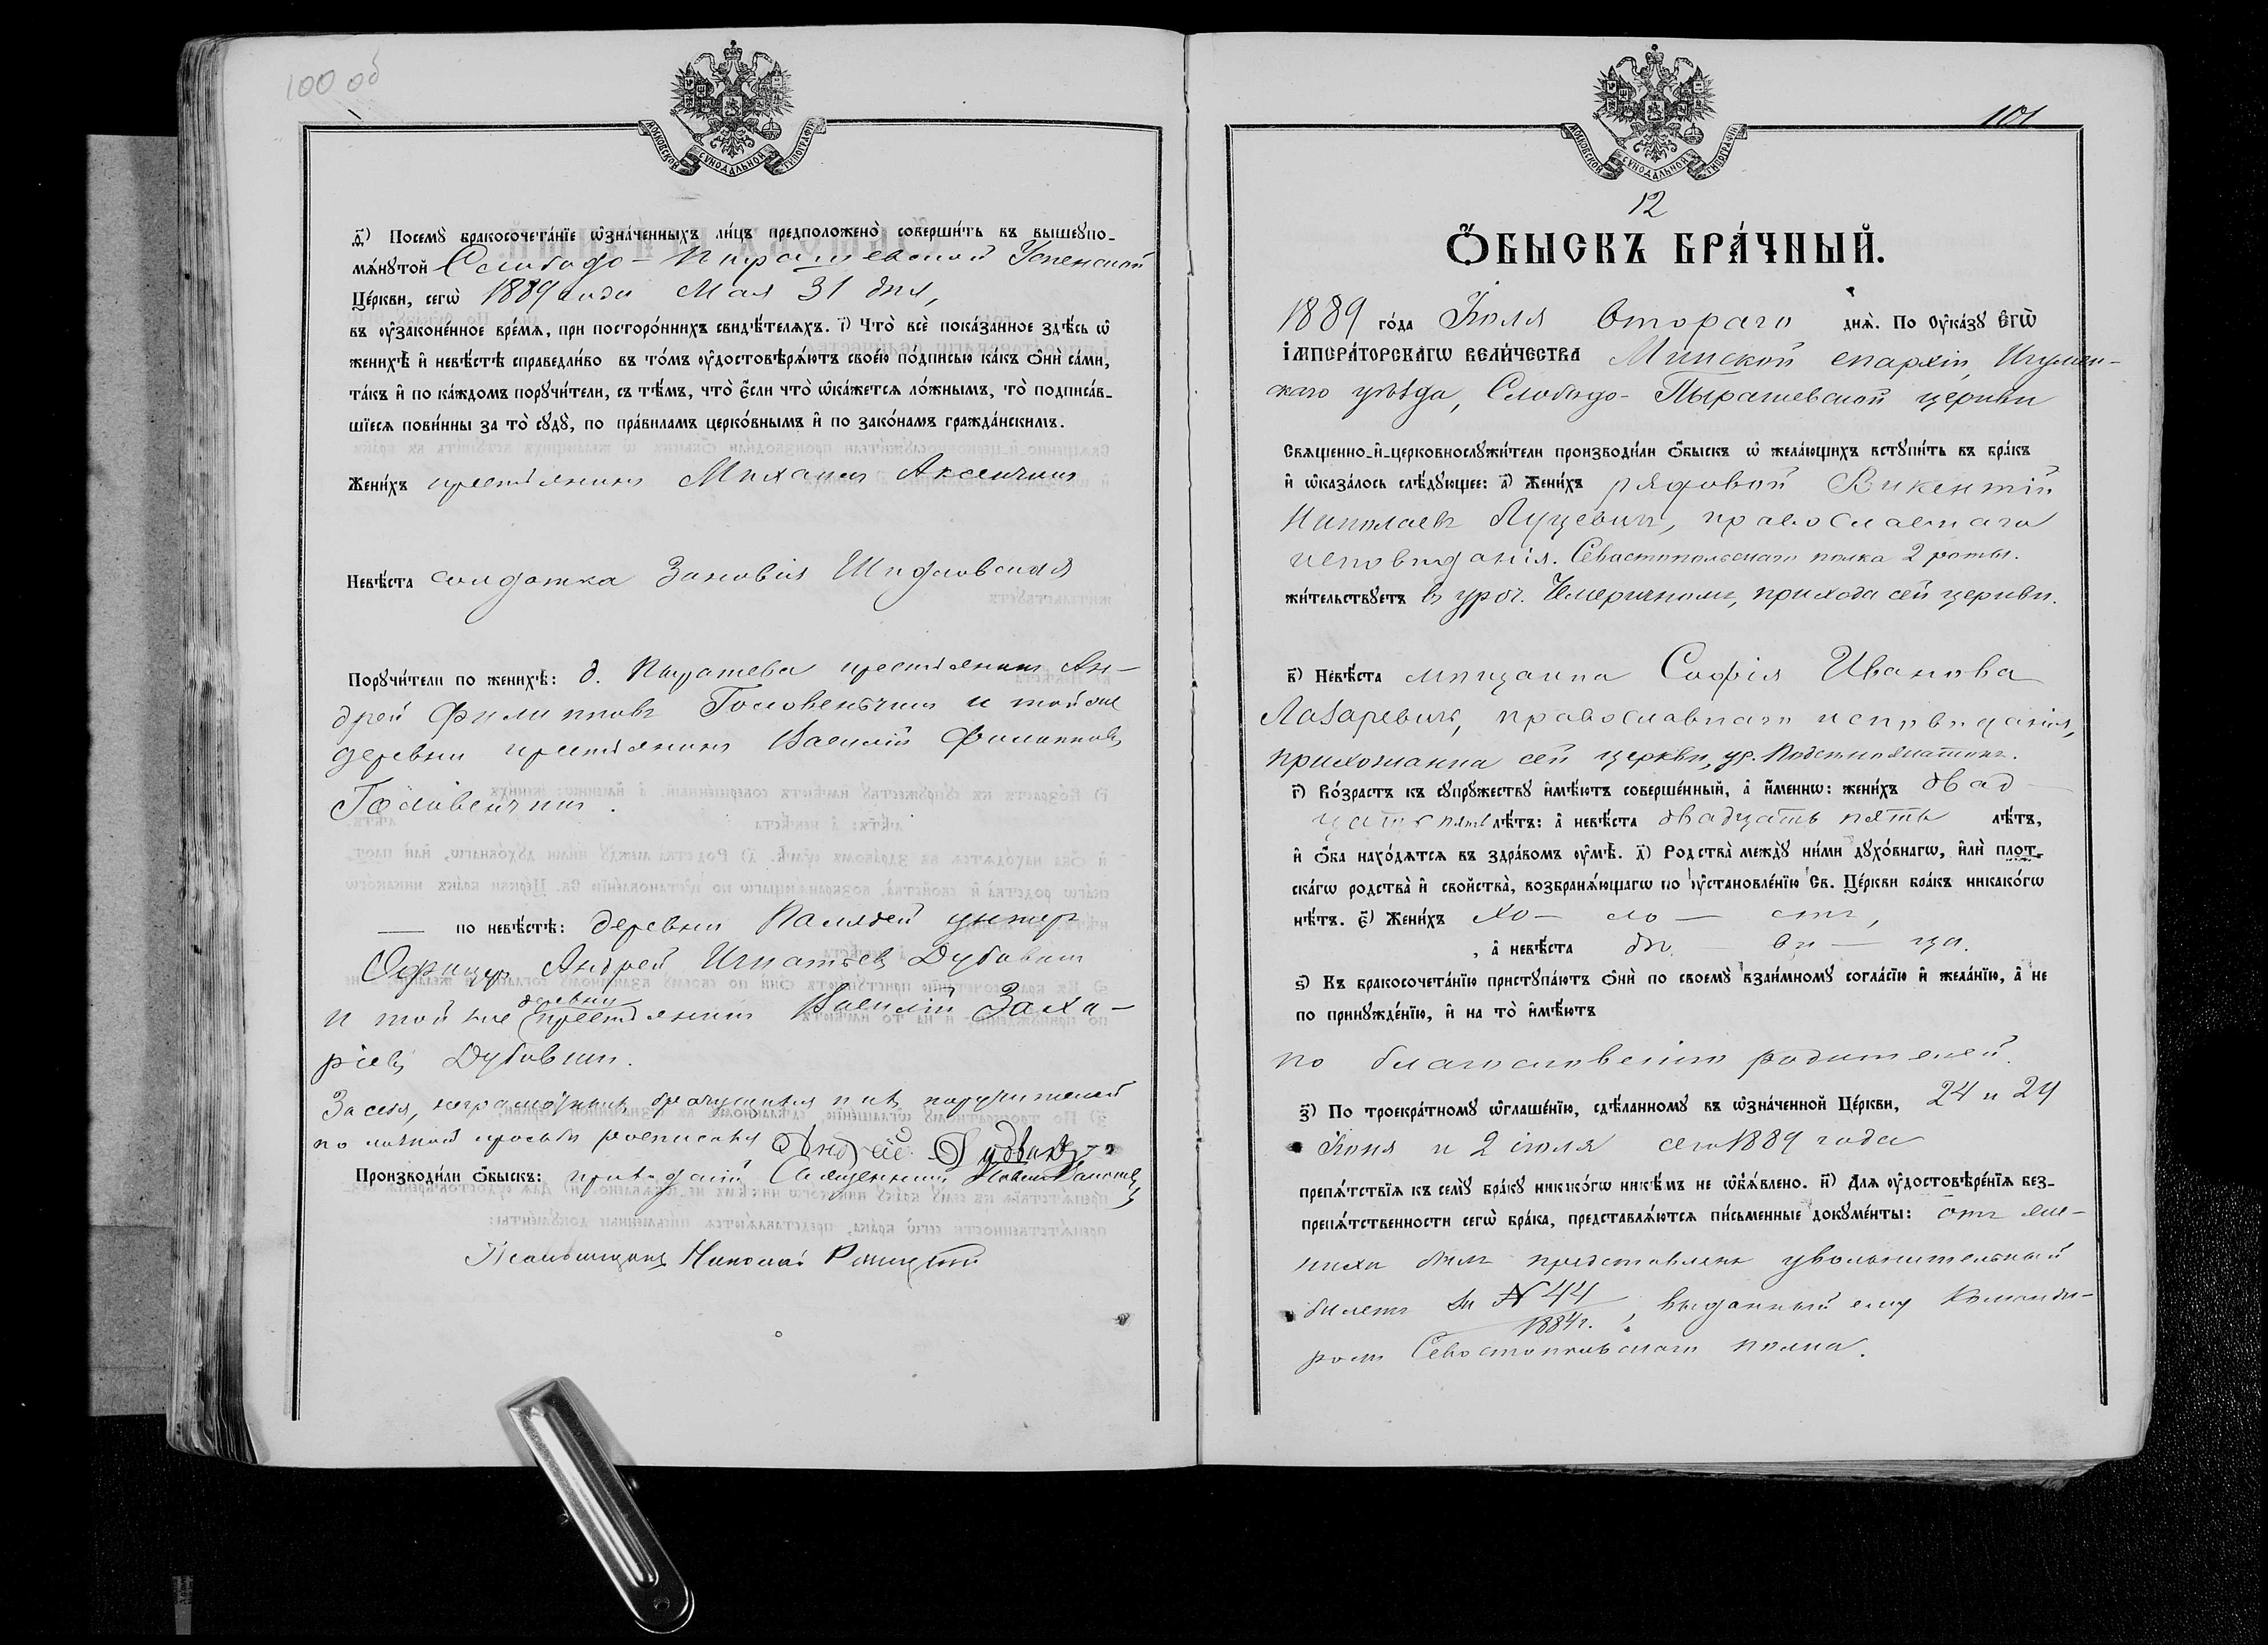 100 об
МОСКОВСКОЙ СѴНОДАЛЬНОЙ ТИПОГРАФІИ
д҃) Посемꙋ̀ бракосочета́нїе ѡ҆зна́ченныхъ ли́цъ предположено̀ соверши́ть въ вышеꙋпо-
мѧ́нꙋтой Слободо-Пырашевской Успенской
Це́ркви, сегѡ̀ 1889 года Мая 31 дня,
въ ᲂу҆зако́нённое вре́мѧ, при посторо́ннихъ свидѣ́телѧхъ. і҃) Что̀ всѐ пока́занное здѣ́сь ѡ҆
женихѣ̀ и҆ невѣ́стѣ справедли́во въ то́мъ ᲂу҆достовѣрѧ́ютъ свое́ю по́дписью ка́къ ѻ҆нѝ са́ми,
та́къ и҆ по ка́ждомъ порꙋчи́тели, съ тѣ́мъ, что̀ є҆́сли что̀ ѡ҆ка́жетсѧ ло́жнымъ, то̀ подписа́в-
шїесѧ пови́нны за то̀ сꙋдꙋ̀, по пра́виламъ церко́внымъ и҆ по зако́намъ гражда́нскимъ.
Жени́хъ крестьянинъ Михаилъ Аксючиць
Невѣ́ста солдатка Зиновія Шидловская
Порꙋчи́тели по женихѣ̀: д. Пырашева крестьянинъ Ан-
дрей Филипповъ Головенчиць и той же
деревни крестьянинъ Василій Филипповъ
Головенчиць.
— по невѣ́стѣ: деревни унтеръ
Офицеръ Андрей Игнатьевъ Дубовикъ
и той же деревни крестьянинъ Василій Заха-
ріевъ Дубовикъ.
За себя, неграмотныхъ брачущихся и ихъ поручителей
по личной просьбѣ росписался Андрей Дубовикъ
Производи́ли ѻ҆́быскъ: приходскій Священникъ
Псаломщикъ Николай
101
МОСКОВСКОЙ СѴНОДАЛЬНОЙ ТИПОГРАФІИ
12
Ѻ҆́БЫСКЪ БРА́ЧНЫЙ.
1889 го́да Іюля второго днѧ̀. По Оу҆ка́зꙋ Є҆гѡ̀
І҆МПЕРА́ТОРСКАГѠ ВЕЛИ́ЧЕСТВА Минской епархіи, Игумен-
скаго уѣзда, Слободо-Пырашевской церкви
Свѧщенно-и҆-церковнослꙋжи́тели производи́ли ѻ҆́быскъ ѡ҆ жела́ющихъ встꙋпи́ть въ бра́къ
и҆ ѡ҆каза́лось слѣ́дꙋющее: а҃) Жени́хъ рядовой Викентій
Николаевъ Луцевичъ, православнаго
исповѣданія. Севастопольскаго полка 2 роты.
жи́тельствꙋетъ въ уроч. Чемеричномъ, прихода сей церкви.
в҃) Невѣ́ста мѣщанка Софія Иванова
Лазаревичъ, православнаго исповѣданія,
прихожанка сей церкви, ур.
г҃) Во́зрастъ къ сꙋпрꙋ́жествꙋ и҆мѣ́ютъ соверше́нный, а҆ и҆́меннѡ: жени́хъ двад
цать пять лѣ́тъ: а҆ невѣ́ста двадцать пять лѣ́тъ,
и҆ ѻ҆́ба нахо́дѧтсѧ въ здра́вомъ ᲂу҆мѣ̀. д҃) Родства̀ междꙋ̀ ни́ми дꙋхо́внагѡ, и҆лѝ пло́т-
скагѡ родства̀ и҆ свойства̀, возбранѧ́ющагѡ по ᲂу҆становле́нїю Св. Це́ркви бра́къ никако́гѡ
нѣ́тъ. є҃) Жени́хъ хо- ло- стъ,
, а҆ невѣ́ста дѣ- ви- ца.
ѕ҃) Къ бракосочета́нїю пристꙋпа́ютъ ѻ҆нѝ по своемꙋ̀ взаи́мномꙋ согла́сїю и҆ жела́нїю, а҆ не
по принꙋжде́нїю, и҆ на то̀ и҆мѣ́ютъ
по благословенію родителей.
з҃) По троекра́тномꙋ ѡ҆глаше́нїю, сдѣ́ланномꙋ въ ѡ҆зна́ченной Це́ркви, 24 и 29
Іюня и 2 іюля сего 1889 года
препѧ́тствїѧ къ семꙋ̀ бра́кꙋ никако́гѡ никѣ́мъ не ѡ҆б̾ѧ́влено. и҃) Длѧ ᲂу҆достовѣре́нїѧ без-
препѧ́тственности сегѡ̀ бра́ка, представлѧ́ютсѧ пи́сьменные докꙋме́нты: отъ же-
ниха былъ представленъ увольнительный
билетъ за № 44 / 1884 г., выданный ему Команди-
ромъ Севастопольскаго полка.